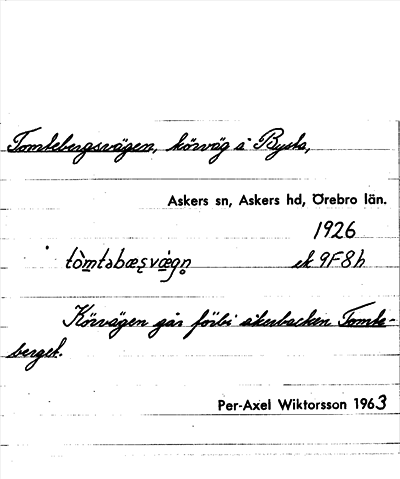 Tomtebergsvägen, körväg å Bysta,
Askers sn, Askers hd, Örebro län.
1926
tòmtəbæṣvæ̀gn̥ ek 9F8h
Körvägen går förbi åkerbacken Tomte-
berget.
Per-Axel Wiktorsson 1963